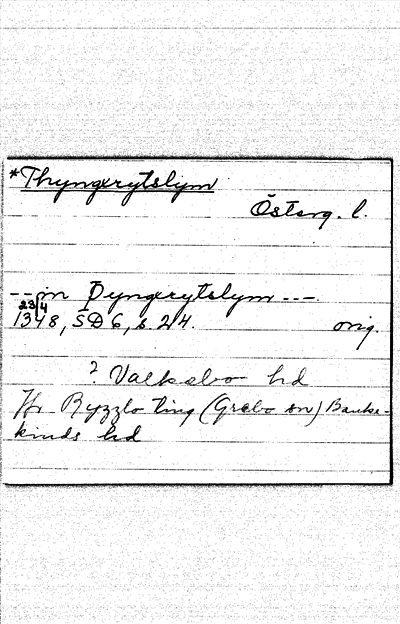 *Thyngxrytslym
Österg. l.
--in Þyngxrytslym ---.
23/4
1348, SD 6, s. 24. orig.
? Valkebo hd
Fr. Ryzzlo ting (Grebo sn) Banke-
kinds hd